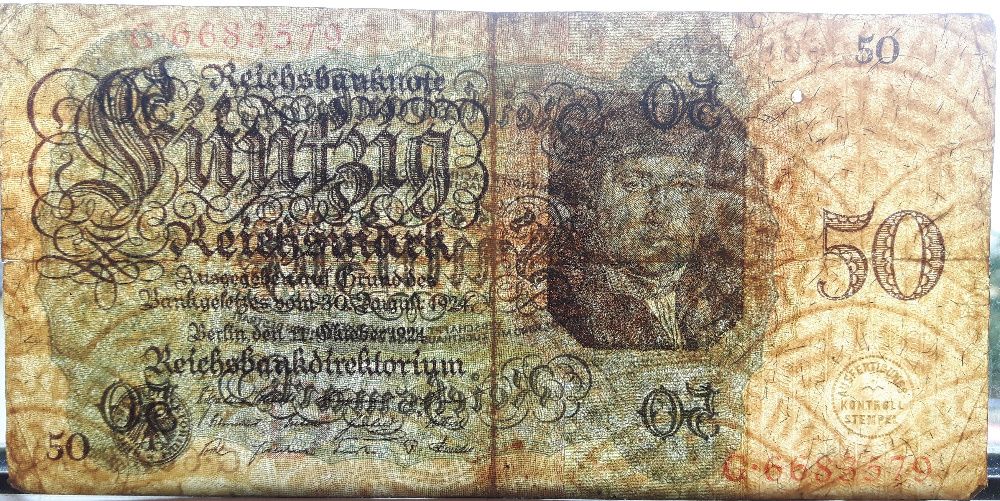 G·6683579
50
Reichsbanknote
Fünfzig
Reichsmark
Ausgegeben auf Grund des
Bankgesetzes vom 30. August 1924
Berlin, den 11. Oktober 1924
Reichsbankdirektorium
50
50
AUSFERTIGUNG
KONTROLL
STEMPEL
G·6683579